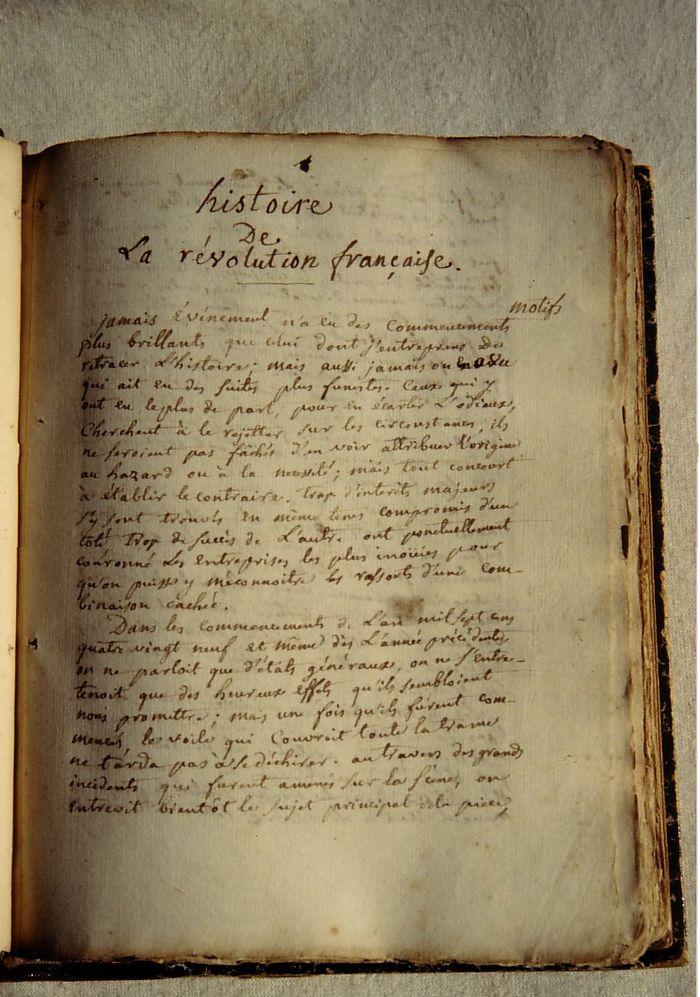 histoire
De
La révolution française.
motifs
jamais Evénement n'a eu des commencements
plus brillants que celui dont j'entreprens de
retracer L'histoire; mais aussi jamais on
qui ait eu des suites plus funestes. Ceux qui y
ont eu le plus de part, pour en écarter L'odieux,
Cherchent à le rejetter sur les circonstances, ils
ne seroient pas fachés d'en voir attribuer l'origine
au hazard ou à la necessité; mais tout concourt
à établir le contraire. trop d'interêts majeurs
s'y sont trouvés en même tems compromis d'un
côté trop de succès de L'autre ont ponctuellement
couronné Les Entreprises les plus inouïes pour
qu'on puisse y méconnoitre les ressorts d'une com-
binaison cachée.
Dans les commencements de L'an mil sept cens
quatre vingt neuf et même dès L'année précédente,
on ne parloit que d'états généraux, on ne s'entre-
tenoit que des heureux effets qu'ils sembloient
nous promettre; mais une fois qu'ils furent com-
mencés le voile qui Couvroit toute la trame
ne tarda pas à se déchirer. au travers des grands
incidents qui furent amenés sur la scène, on
Entrevit bientôt le sujet principal de la piece,